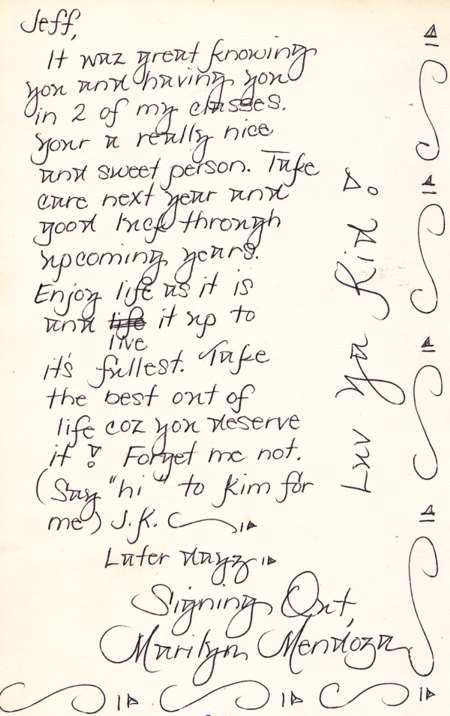 Jeff,
It waz great knowing
you and having you
in 2 of my classes.
Your a really nice
and sweet person. Take
care next year and
good luck through
upcoming years.
Enjoy life as it is
and life it up to
live
it's fullest. Take
the best out of
life coz you deserve
it! Forget me not.
(Say "hi" to Kim for
me) J.K.
Later dayz
Signing Out,
Marilyn Mendoza
Luv Ya Kid!